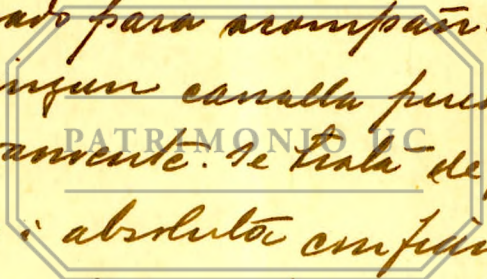 ado para acompañ
ingun canalla pue
PATRIMONIO UC
amente. Se trata de
i absoluta confian